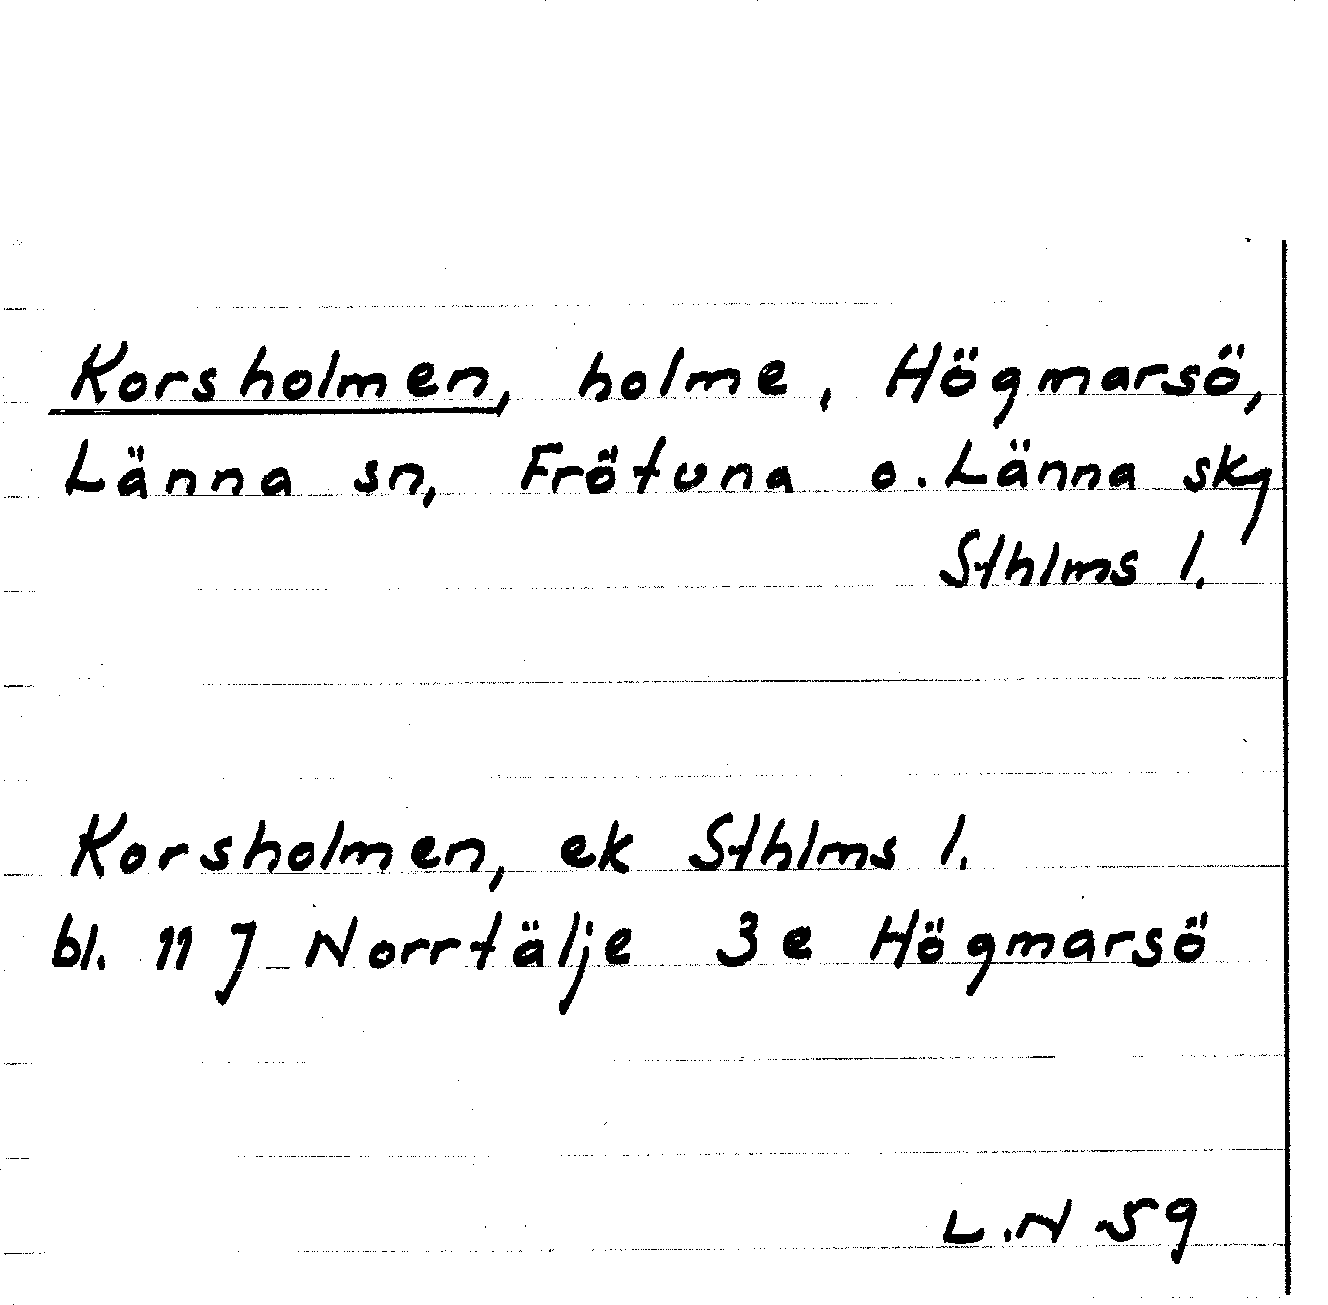 Korsholmen, holme, Högmarsö,
Länna sn, Frötuna o. Länna skg
Sthlms l.
Korsholmen, ek Sthlms l.
bl. 11 J Norrtälje 3 e Högmarsö
L.N 59